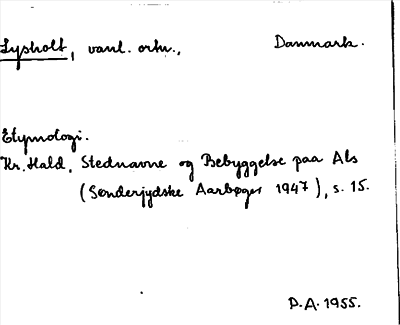 Lysholt, vanl. ortn., Danmark.
Etymologi.
Kr. Hald, Stednavne og Bebyggelse paa Als
(Sønderjydske Aarbøger 1947), s. 15.
D.A. 1955.